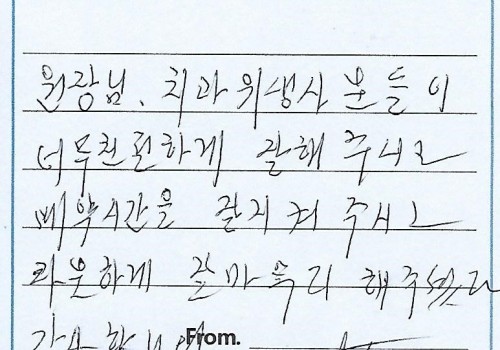 원장님, 치과위생사 분들이
너무친절하게 잘해 주시고
예약시간을 잘지켜 주시고
잘마무리 해주셨
감사합니다
From.